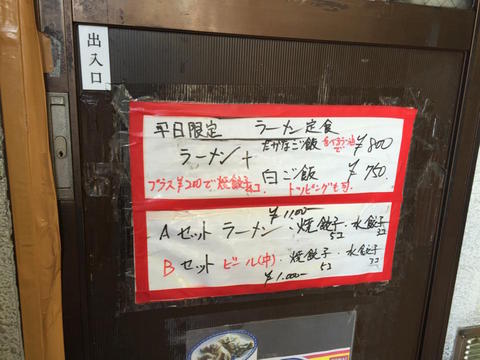 出入口
平日限定 ラーメン定食
ラーメン+ たかなご飯 ¥800
白ご飯 ¥750
プラス¥200で焼餃子 コ. トッピングも可.
¥1,100-
Aセット ラーメン・焼餃子・水餃子
5コ 3コ
Bセット ビール(中)・焼餃子・水餃子
5コ 3コ
¥1,000-